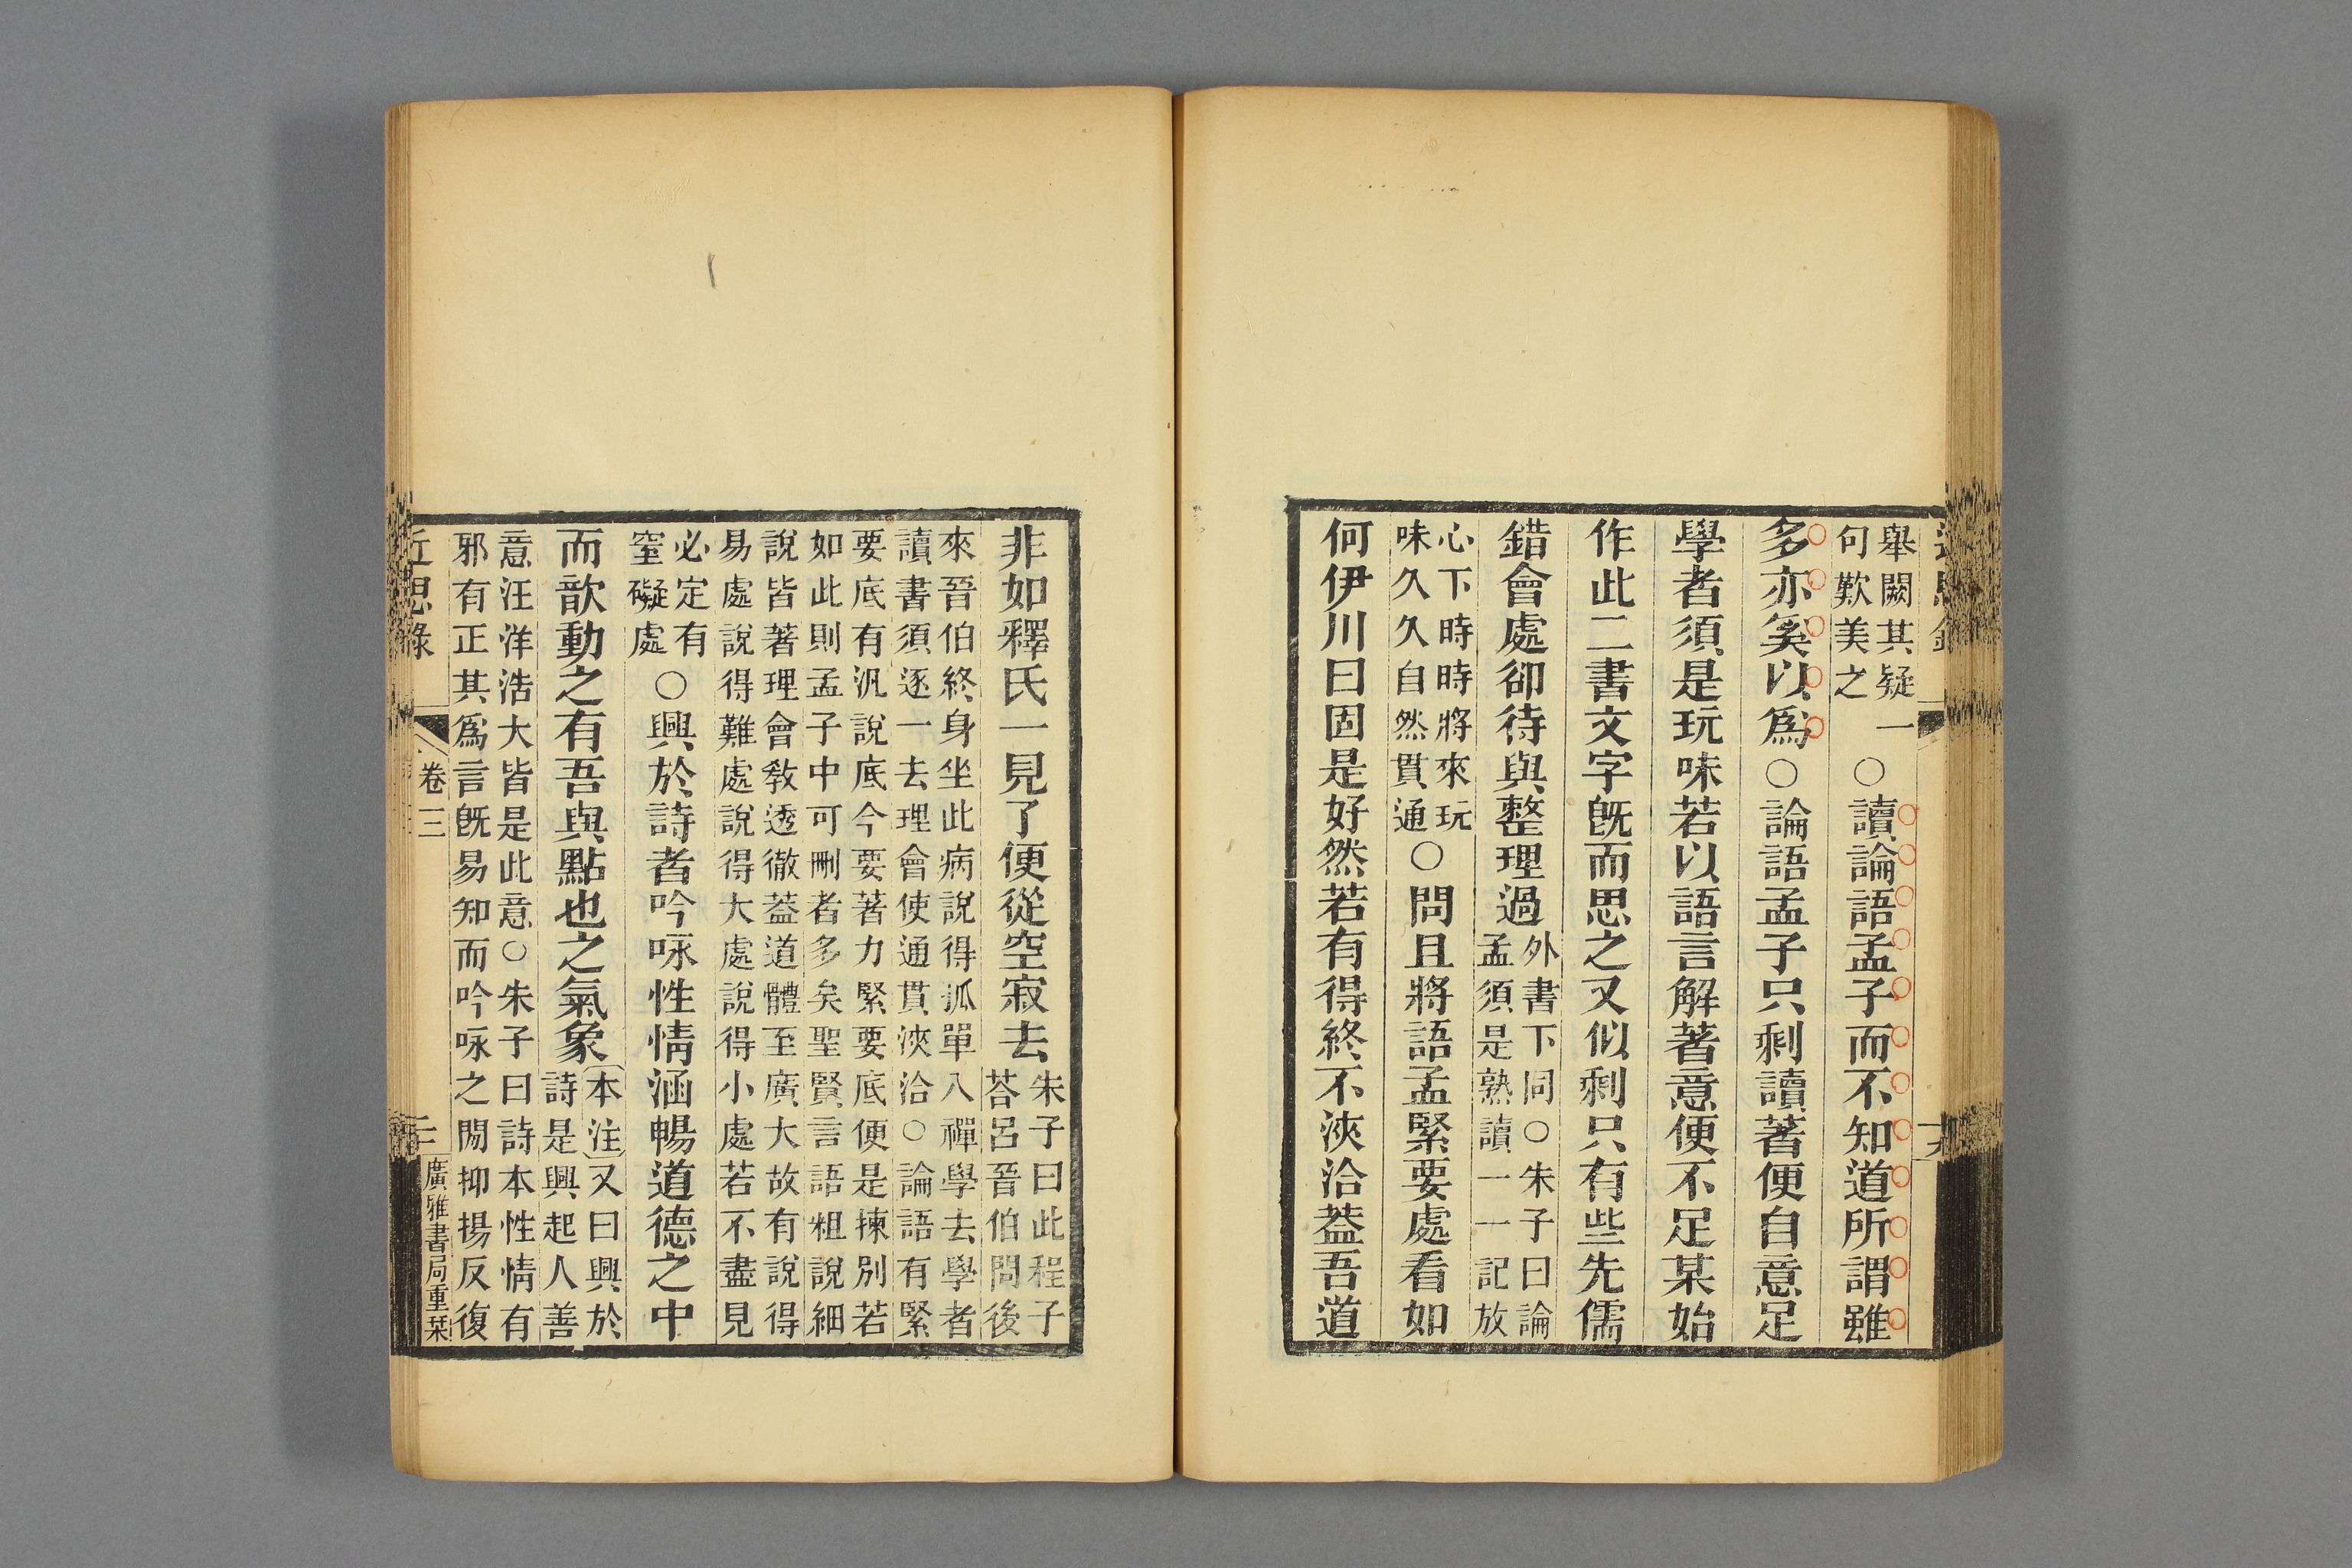 舉闕其疑一
句歎美之
○讀論語孟子而不知道所謂雖
多亦奚以爲○論語孟子只剩讀著便自意足
學者須是玩味若以語言解著意便不足某始
作此二書文字旣而思之又似剩只有些先儒
錯會處卻待與整理過
外書下同○朱子曰論
孟須是熟讀一一記放
心下時時將來玩
味久久自然貫通
○問且將語孟緊要處看如
何伊川曰固是好然若有得終不浹洽葢吾道
非如釋氏一見了便從空寂去
朱子曰此程子
荅呂晉伯問後
來晉伯終身坐此病說得孤單入禪學去學者
讀書須逐一去理會使通貫浹洽○論語有緊
要底有汎說底今要著力緊要底便是揀別若
如此則孟子中可刪者多矣聖賢言語粗說細
說皆著理會敎透徹葢道體至廣大故有說得
易處說得難處說得大處說得小處若不盡見
必定有
窒礙處
○興於詩者吟咏性情涵暢道德之中
而歆動之有吾與點也之氣象
〔本注〕又曰興於
詩是興起人善
意汪洋浩大皆是此意○朱子曰詩本性情有
邪有正其爲言旣易知而吟咏之閒抑揚反復
近思錄
卷三
廣雅書局重栞